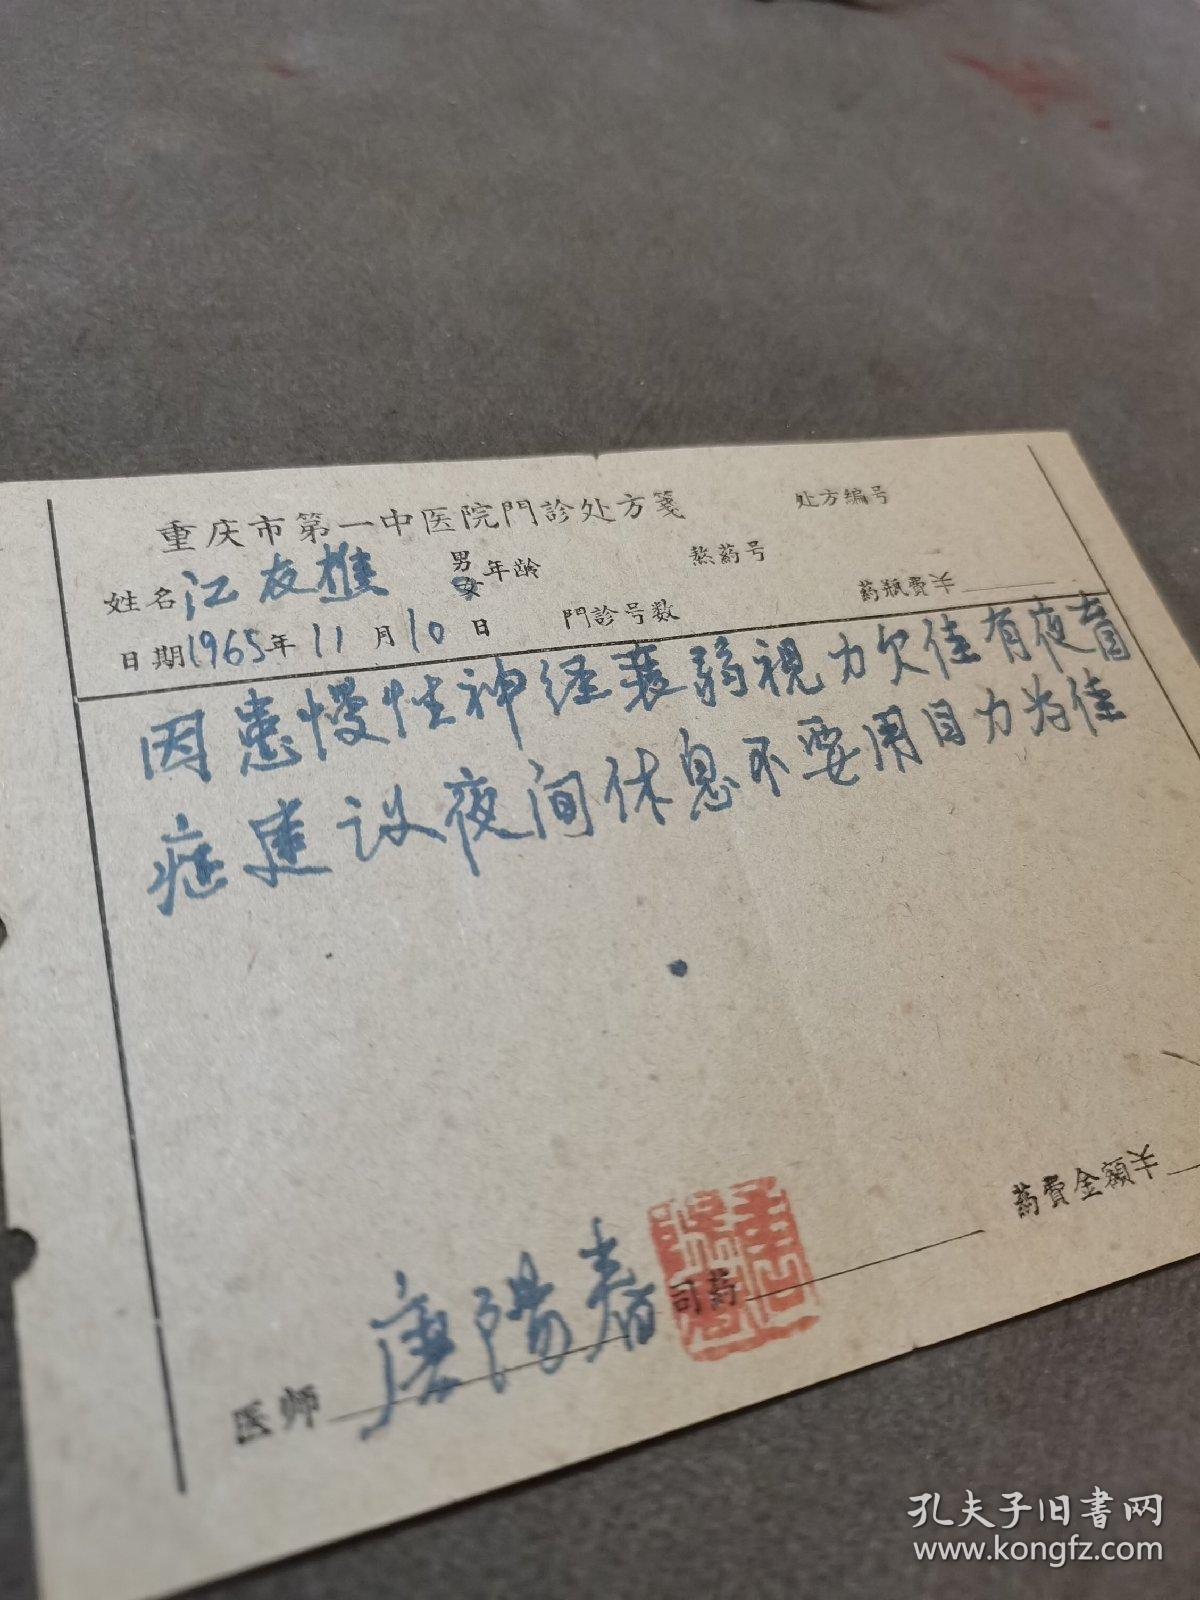 重庆市第一中医院門診处方箋
处方編号
姓名 江友樵 男女 年龄
熬葯号
葯瓶費¥
日期 1965年11月10日
門診号数
因患慢性神经衰弱視力欠佳有夜盲
症建议夜间休息不要用目力为佳
葯費金額¥
医师 唐陽春
司葯
孔夫子旧书网
www.kongfz.com